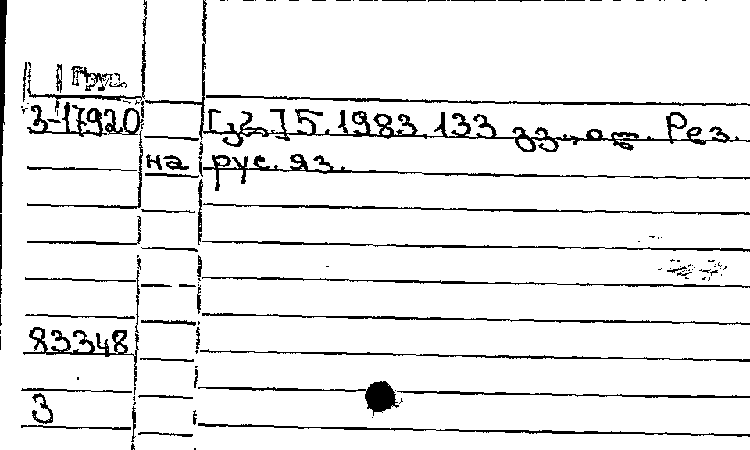 Груз.
3-17920 [კ2.] 5.1983 133 გვ., ათ. Рез.
на рус. яз.
83348
3